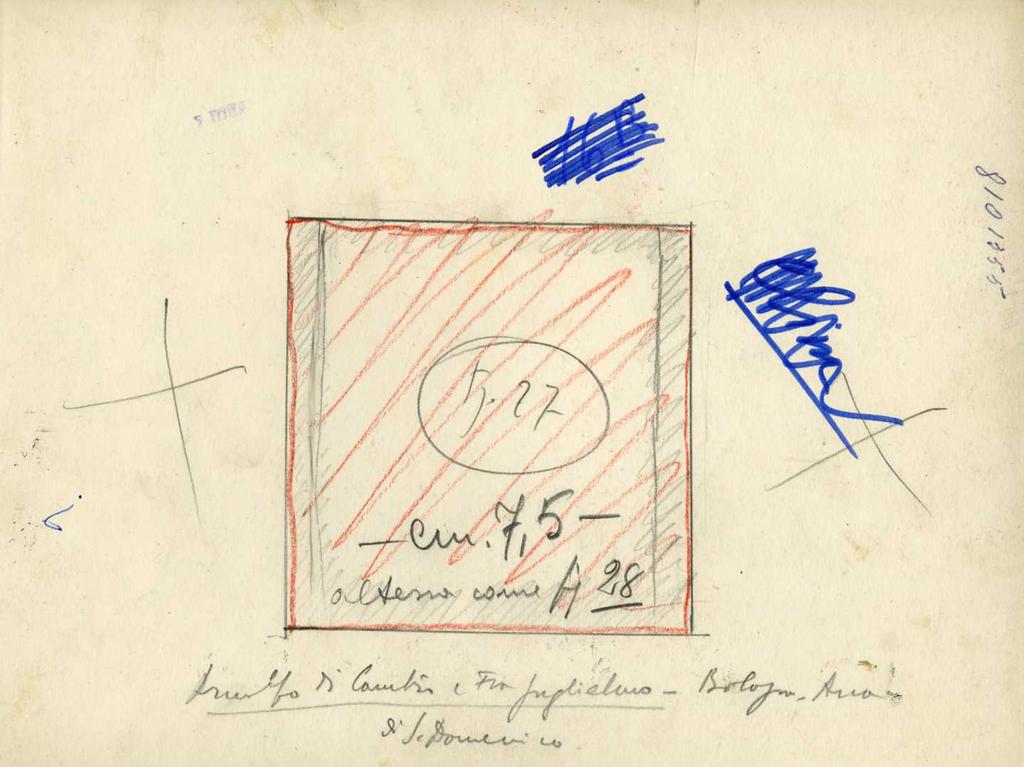 8101355
fig. 27
— cm. 7,5 —
altezza come fig 28
Arnolfo di Cambio e Fra Guglielmo – Bologna. Arca
di S. Domenico